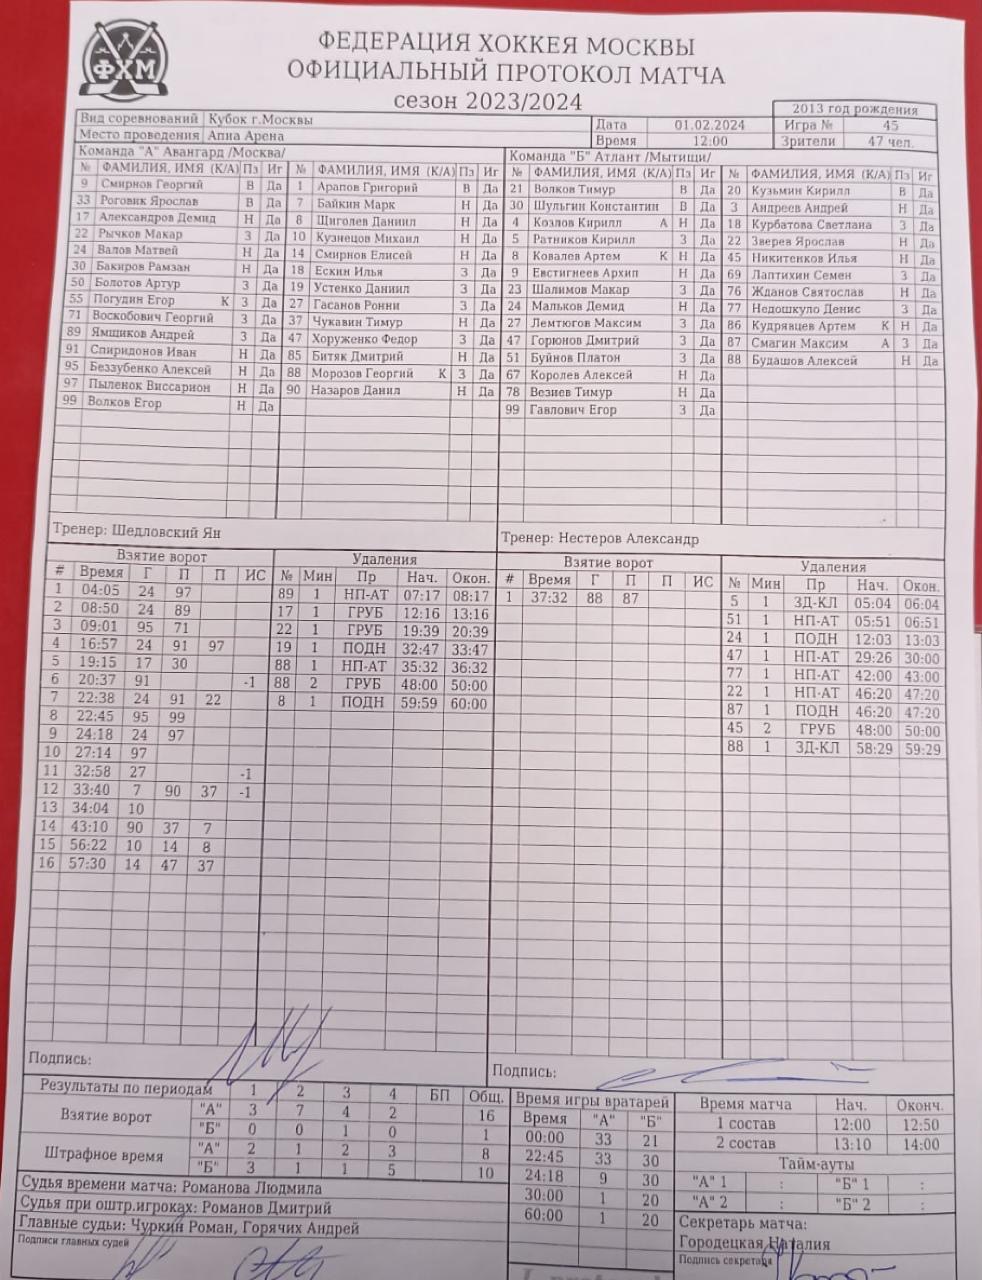 ФХМ
ФЕДЕРАЦИЯ ХОККЕЯ МОСКВЫ
ОФИЦИАЛЬНЫЙ ПРОТОКОЛ МАТЧА
сезон 2023/2024
2013 год рождения
Вид соревнований Кубок г.Москвы Дата 01.02.2024 Игра № 45
Место проведения Апиа Арена Время 12:00 Зрители 47 чел.
Команда "А" Авангард /Москва/ Команда "Б" Атлант /Мытищи/
№ ФАМИЛИЯ, ИМЯ (К/А) Пз Иг № ФАМИЛИЯ, ИМЯ (К/А) Пз Иг № ФАМИЛИЯ, ИМЯ (К/А) Пз Иг № ФАМИЛИЯ, ИМЯ (К/А) Пз Иг
9 Смирнов Георгий В Да 1 Арапов Григорий В Да 21 Волков Тимур В Да 20 Кузьмин Кирилл В Да
33 Роговик Ярослав В Да 7 Байкин Марк Н Да 30 Шульгин Константин В Да 3 Андреев Андрей Н Да
17 Александров Демид Н Да 8 Щиголев Даниил Н Да 4 Козлов Кирилл А Н Да 18 Курбатова Светлана З Да
22 Рычков Макар З Да 10 Кузнецов Михаил Н Да 5 Ратников Кирилл З Да 22 Зверев Ярослав Н Да
24 Валов Матвей Н Да 14 Смирнов Елисей Н Да 8 Ковалев Артем К Н Да 45 Никитенков Илья Н Да
30 Бакиров Рамзан Н Да 18 Ескин Илья З Да 9 Евстигнеев Архип Н Да 69 Лаптихин Семен З Да
50 Болотов Артур З Да 19 Устенко Даниил З Да 23 Шалимов Макар З Да 76 Жданов Святослав Н Да
55 Погудин Егор К З Да 27 Гасанов Ронни З Да 24 Мальков Демид Н Да 77 Недошкуло Денис З Да
71 Воскобович Георгий З Да 37 Чукавин Тимур Н Да 27 Лемтюгов Максим З Да 86 Кудрявцев Артем К Н Да
89 Ямщиков Андрей З Да 47 Хоруженко Федор З Да 47 Горюнов Дмитрий З Да 87 Смагин Максим А З Да
91 Спиридонов Иван Н Да 85 Битяк Дмитрий Н Да 51 Буйнов Платон З Да 88 Будашов Алексей Н Да
95 Беззубенко Алексей Н Да 88 Морозов Георгий К З Да 67 Королев Алексей Н Да
97 Пыленок Виссарион Н Да 90 Назаров Данил Н Да 78 Везиев Тимур Н Да
99 Волков Егор Н Да 99 Гавлович Егор З Да
Тренер: Шедловский Ян Тренер: Нестеров Александр
Взятие ворот Удаления Взятие ворот Удаления
# Время Г П П ИС № Мин Пр Нач. Окон. # Время Г П П ИС № Мин Пр Нач. Окон.
1 04:05 24 97 89 1 НП-АТ 07:17 08:17 1 37:32 88 87 5 1 ЗД-КЛ 05:04 06:04
2 08:50 24 89 17 1 ГРУБ 12:16 13:16 51 1 НП-АТ 05:51 06:51
3 09:01 95 71 22 1 ГРУБ 19:39 20:39 24 1 ПОДН 12:03 13:03
4 16:57 24 91 97 19 1 ПОДН 32:47 33:47 47 1 НП-АТ 29:26 30:00
5 19:15 17 30 88 1 НП-АТ 35:32 36:32 77 1 НП-АТ 42:00 43:00
6 20:37 91 -1 88 2 ГРУБ 48:00 50:00 22 1 НП-АТ 46:20 47:20
7 22:38 24 91 22 8 1 ПОДН 59:59 60:00 87 1 ПОДН 46:20 47:20
8 22:45 95 99 45 2 ГРУБ 48:00 50:00
9 24:18 24 97 88 1 ЗД-КЛ 58:29 59:29
10 27:14 97
11 32:58 27 -1
12 33:40 7 90 37 -1
13 34:04 10
14 43:10 90 37 7
15 56:22 10 14 8
16 57:30 14 47 37
Подпись: Подпись:
Результаты по периодам 1 2 3 4 БП Общ. Время игры вратарей Время матча Нач. Оконч.
Взятие ворот "А" 3 7 4 2 16 Время "А" "Б" 1 состав 12:00 12:50
"Б" 0 0 1 0 1 00:00 33 21 2 состав 13:10 14:00
Штрафное время "А" 2 1 2 3 8 22:45 33 30 Тайм-ауты
"Б" 3 1 1 5 10 24:18 9 30 "А" 1 : "Б" 1 :
Судья времени матча: Романова Людмила 30:00 1 20 "А" 2 : "Б" 2 :
Судья при оштр.игроках: Романов Дмитрий 60:00 1 20 Секретарь матча:
Главные судьи: Чуркин Роман, Горячих Андрей Городецкая Наталия
Подписи главных судей Подпись секретаря